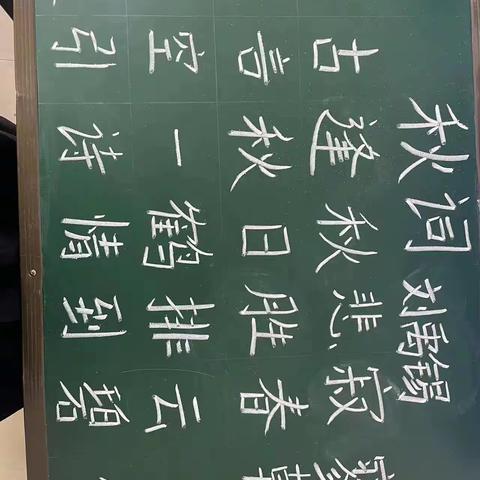 秋词 刘禹锡
古逢秋悲寂
言秋日胜春
空一鹤排云
引诗情到碧